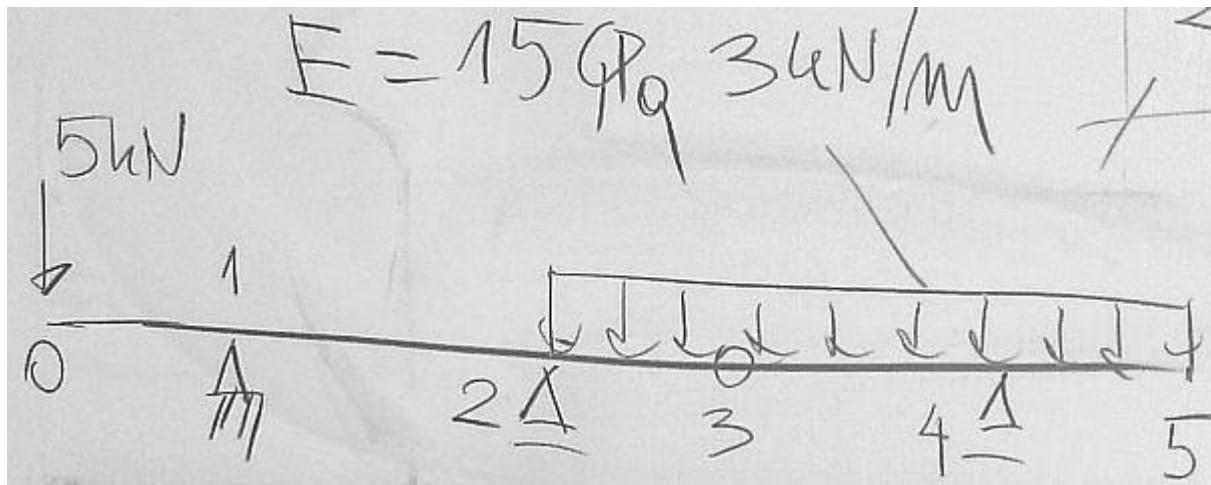 E = 15 GPa 3kN/m
5kN
1
0
2
3
4
5